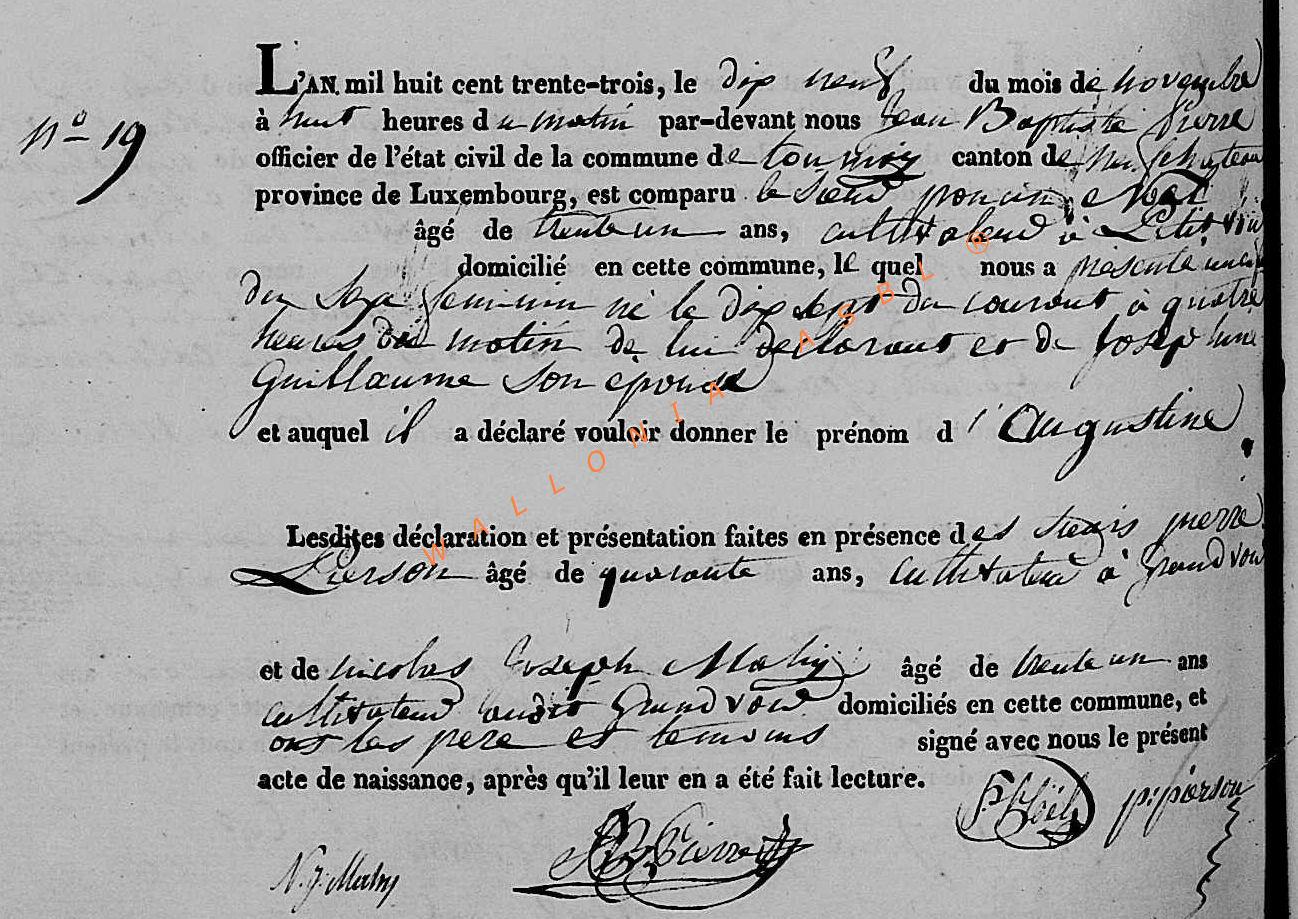 L'AN mil huit cent trente-trois, le dix neuf du mois de novembre
N° 19
à huit heures du matin par-devant nous Jean Baptiste Pierre
officier de l'état civil de la commune de tournay canton de neufchateau
province de Luxembourg, est comparu le sieur Noel
âgé de trente un ans, cultivateur à Petit voir
domicilié en cette commune, le quel nous a présenté
du sexe feminin né le dix sept du courant à quatre
heures du matin de lui declarant et de Josephine
Guillaume son épouse
et auquel il a déclaré vouloir donner le prénom d'Augustine
Lesdites déclaration et présentation faites en présence des sieurs pierre
Pierson âgé de quarante ans, cultivateur à grand voir
et de nicolas Joseph âgé de trente un ans
cultivateur audit Grand voir domiciliés en cette commune, et
ont les pere et temoins signé avec nous le présent
acte de naissance, après qu'il leur en a été fait lecture.
P. Noël p: pierson
JB Pierre
N. J.
WALLONIA ASBL ®